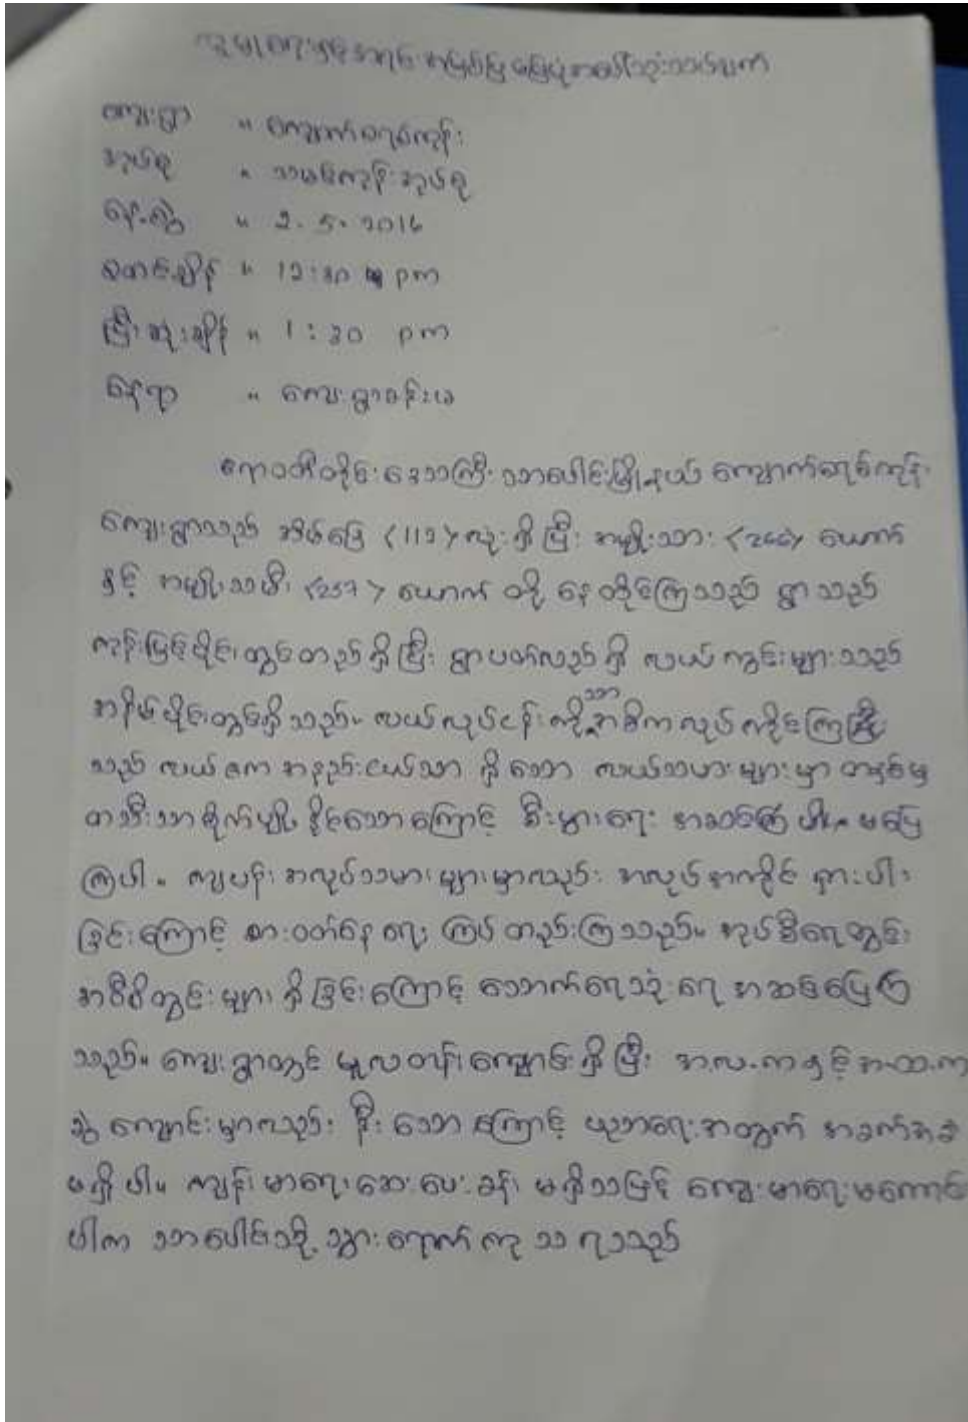 လူမှုရေးနှင့်အရင်းအမြစ်ပြမြေပုံအပေါ်သုံးသပ်ချက်
ကျေးရွာ " ကျောက်စရစ်ကုန်း
အုပ်စု " သမန်ကုန်းအုပ်စု
နေ့ရက် " 2.5.2016
စတင်ချိန် " 12:30 pm
ပြီးဆုံးချိန် " 1:30 pm
နေရာ " ကျေးရွာခန်းမ
ဧရာဝတီတိုင်းဒေသကြီး သာပေါင်းမြို့နယ် ကျောက်စရစ်ကုန်း
ကျေးရွာသည် အိမ်ခြေ <112> လုံးရှိပြီး အမျိုးသား <266> ယောက်
နှင့် အမျိုးသမီး <257> ယောက် တို့ နေထိုင်ကြသည် ရွာသည်
ကုန်းမြင့်ပိုင်းတွင်တည်ရှိပြီး ရွာပတ်လည်ရှိ လယ်ကွင်းများသည်
အနိမ့်ပိုင်းတွင်ရှိသည်။ လယ်လုပ်ငန်းကိုသာ အဓိကလုပ်ကိုင်ကြပြီး
သည် လယ်ဧက အနည်းငယ်သာ ရှိသော လယ်သမားများမှာ တနှစ်မှ
တသီးသာစိုက်ပျိုးနိုင်သောကြောင့် စီးပွားရေး အဆင်မပြေ
ကြပါ။ ကျပန်းအလုပ်သမားများမှာလည်း အလုပ်အကိုင် ရှားပါး
ခြင်းကြောင့် စားဝတ်နေရေး ကြပ်တည်းကြသည်။ အုပ်စီရေတွင်း
အဝီစိတွင်းများ ရှိခြင်းကြောင့် သောက်ရေသုံးရေ အဆင်ပြေကြ
သည်။ ကျေးရွာတွင် မူလတန်းကျောင်းရှိပြီး အ.လ.ကနှင့်အ.ထ.က
ခွဲ ကျောင်းမှာလည်း နီးသောကြောင့် ပညာရေးအတွက် အခက်အခဲ
မရှိပါ။ ကျန်းမာရေးဆေးပေးခန်း မရှိသဖြင့် ကျေးမာရေးမကောင်း
ပါက သာပေါင်းသို့ သွားရောက် ကုသရသည်